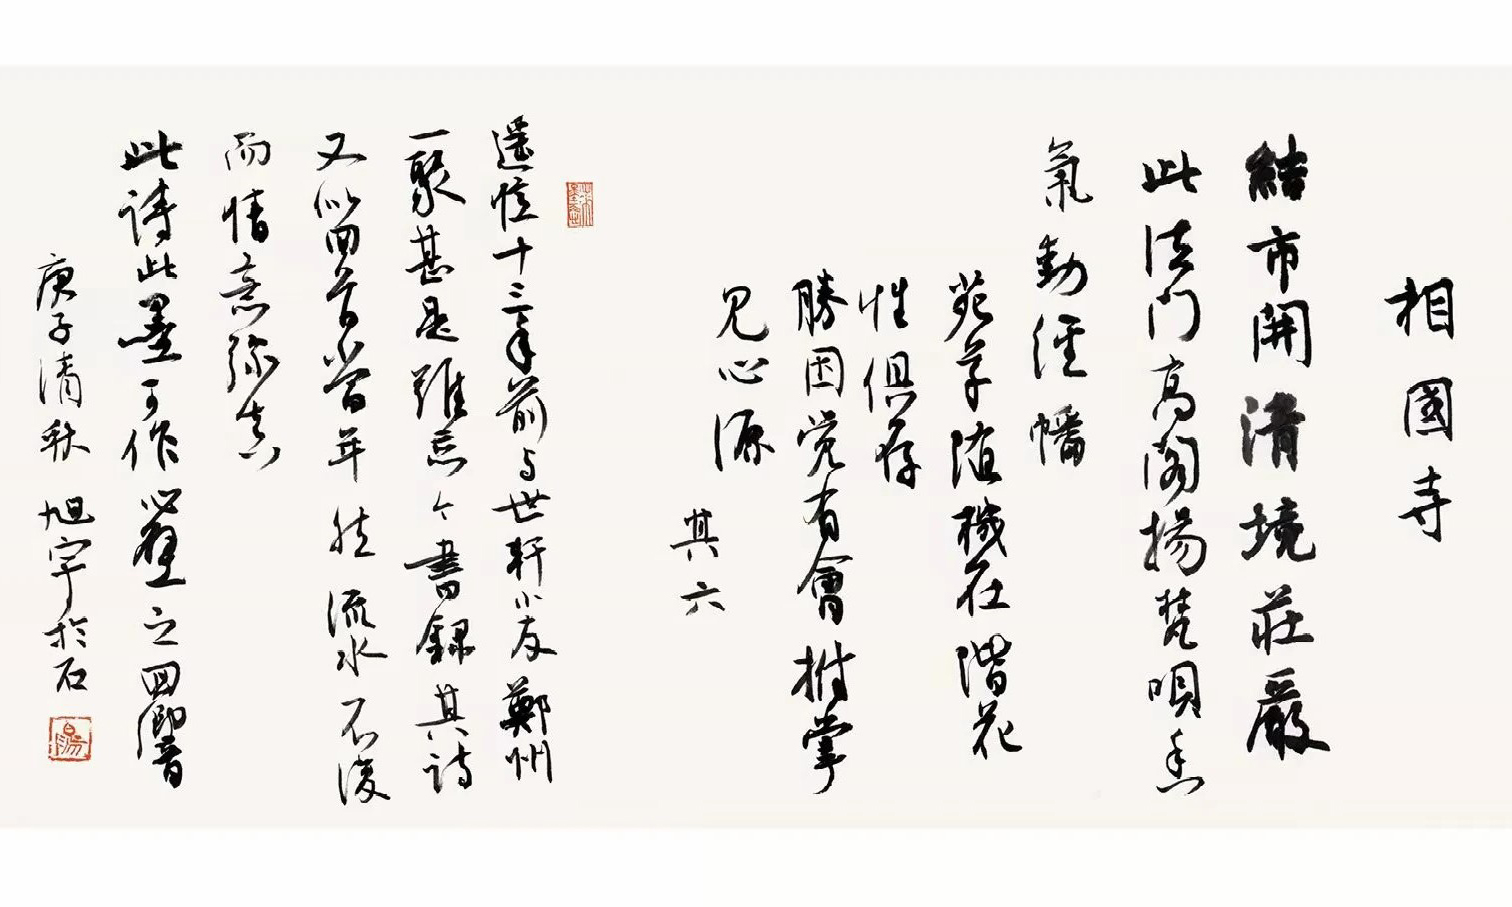 相國寺
結市開清境莊嚴
此法门高閣揚梵唄香
氣動經幡
苑草随機在階花
性俱存
勝因觉有會拊掌
见心源
其六
遥憶十三年前与世軒小友鄭州
一聚甚是難忘今書録其詩
又似回首当年然流水不復
而情意弥真
此诗此墨可作心壁之回響
庚子清秋 旭宇於石